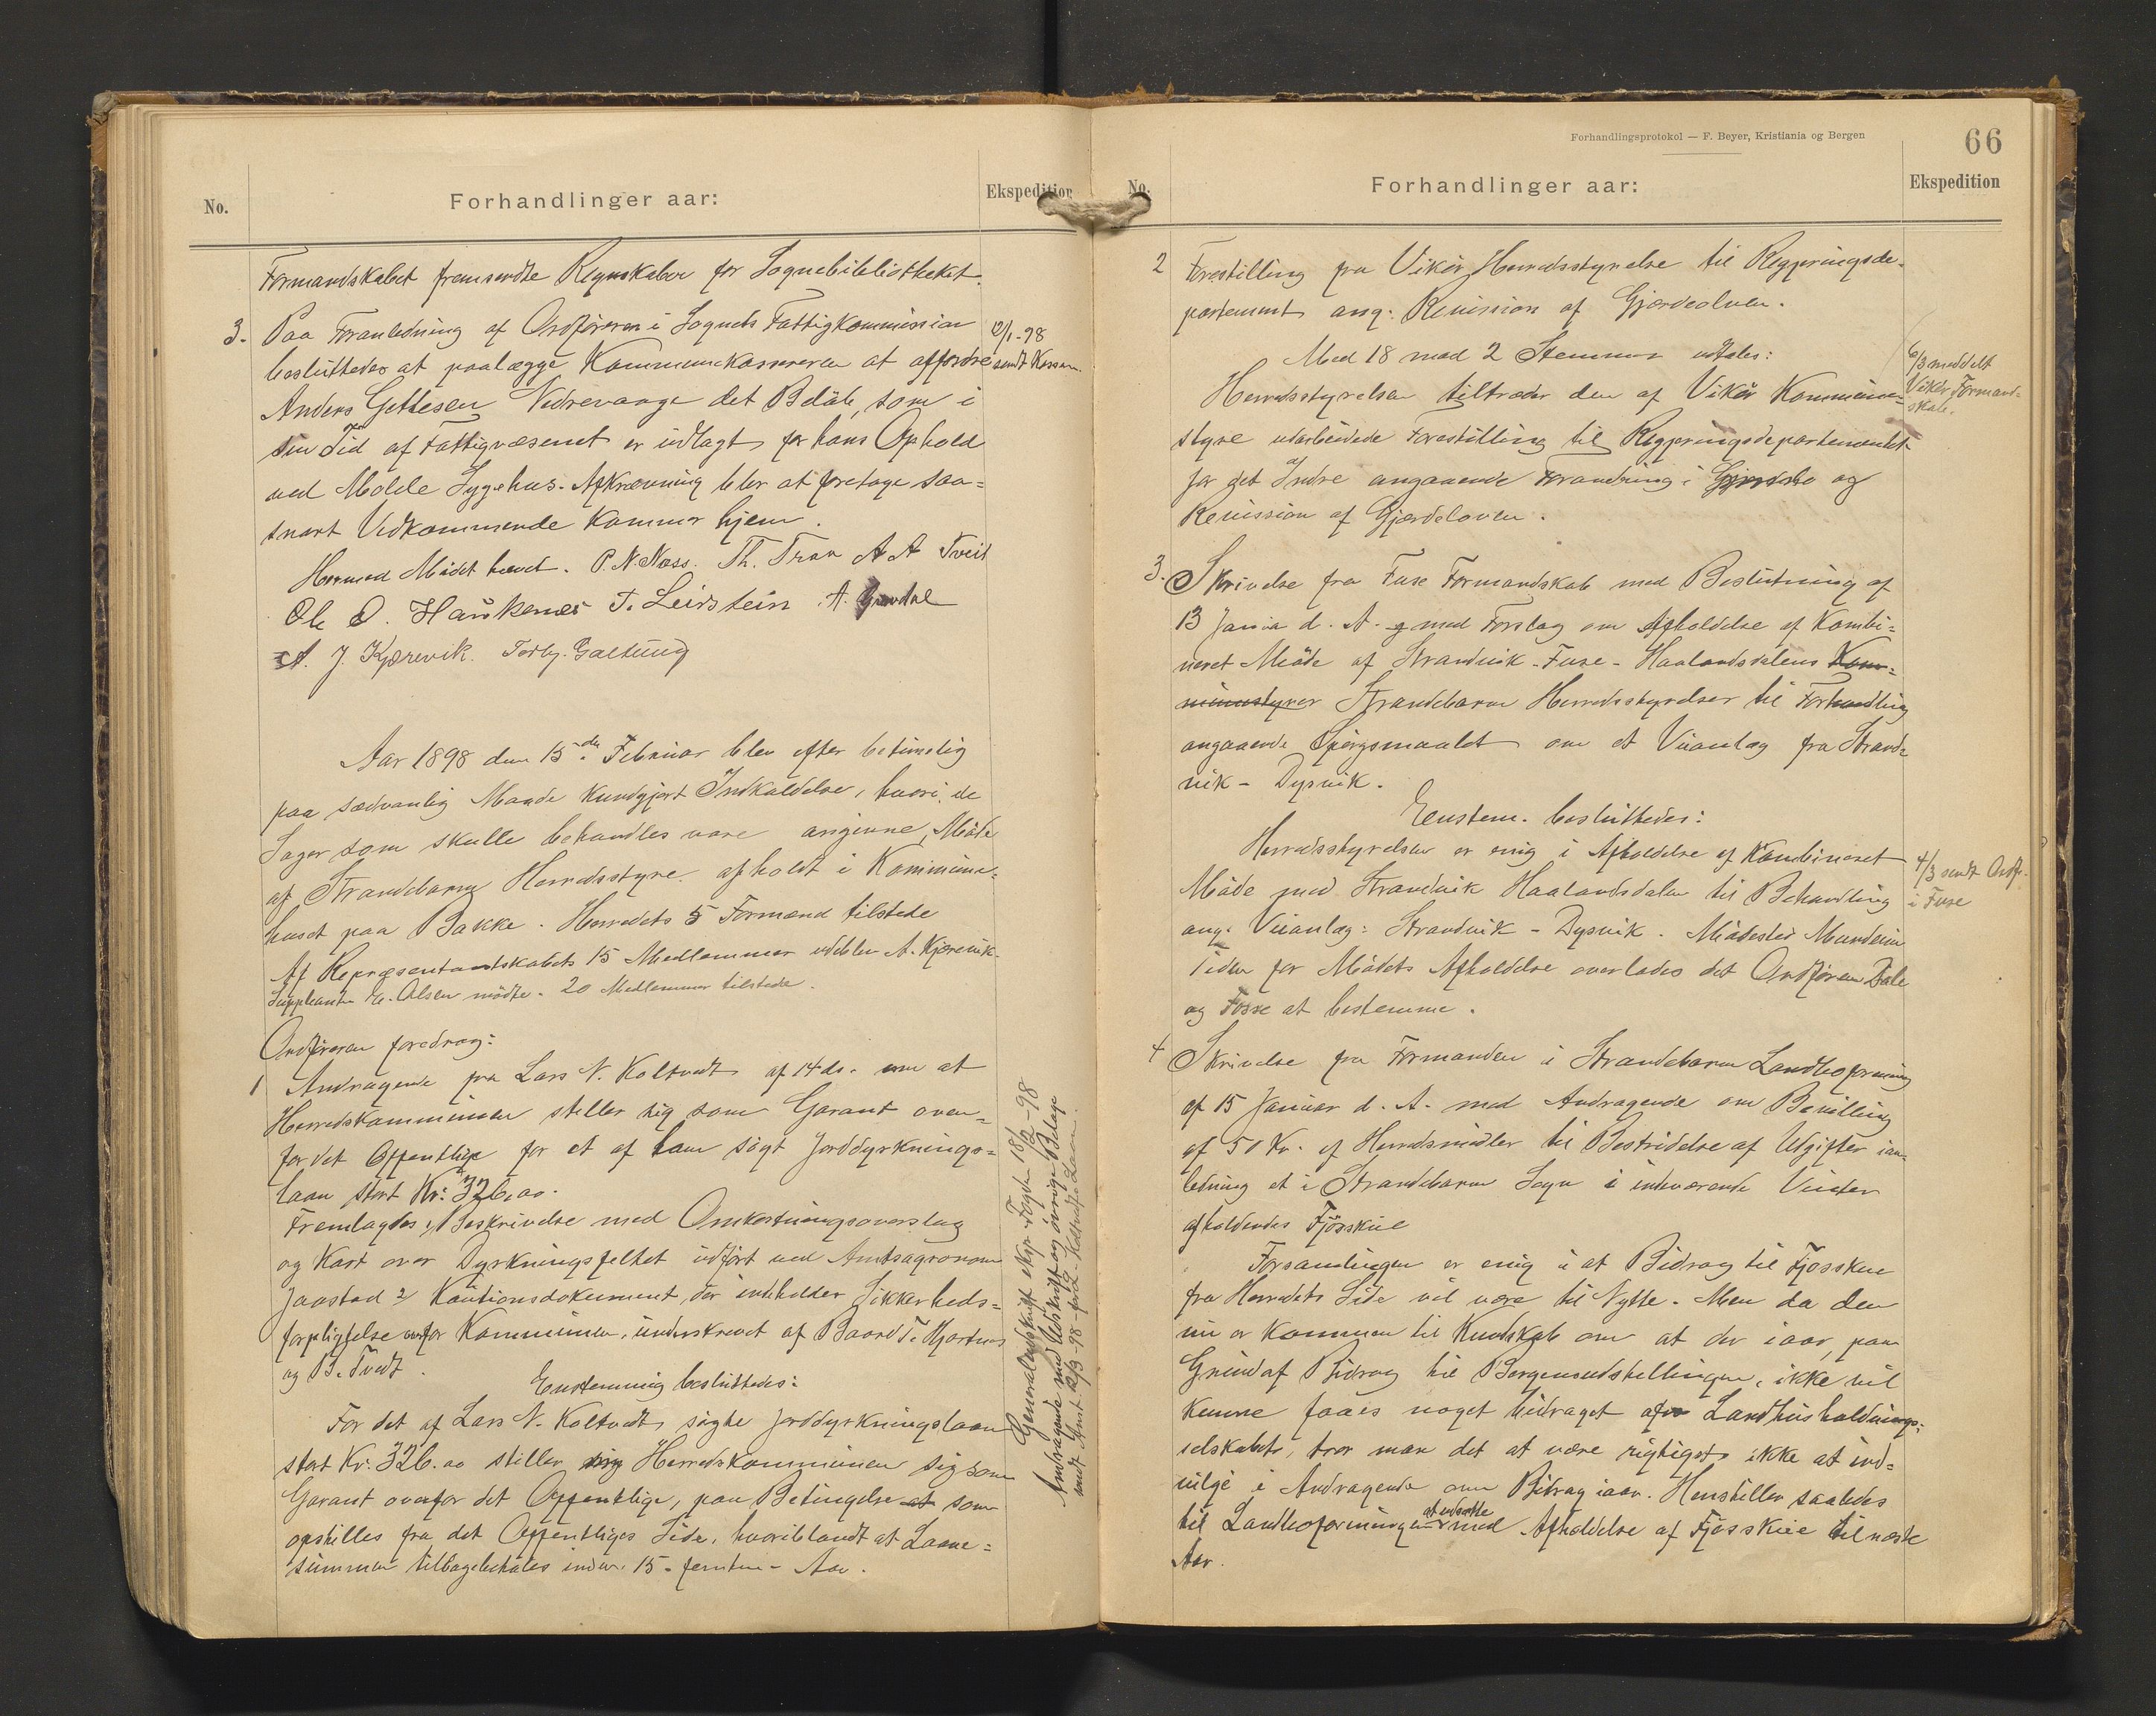 No.
Forhandlinger aar:
Ekspedition
Formandskabet fremsendte Regnskaber for Sognebibliotheket.
3. Paa Foranledning af Ordføreren i Sognets Fattigkommission
besluttedes at paalægge Kommunekassereren at affordre
Anders Gettesen Nedrevaage det Beløb, som i
sin Tid af Fattigvæsenet er udlagt for hans Ophold
ved Molde Sygehus. Afkrævning blir at foretage saa-
snart Vedkommende kommer hjem.
12/1-98
sendt Kasserer
Hermed Mødet hævet. P. N. Næss. Th. Tran A A Tveit
Ole O. Haukenæs T. Leirstein A. Grøvdal
A. J. Kjærevik. Torbj. Galtung
Aar 1898 den 15de Februar blev efter betimelig
paa sædvanlig Maade kundgjort Indkaldelse, hvori de
Sager som skulle behandles vare angivne, Møde
af Strandebarm Herredsstyre afholdt i Kommune-
huset paa Bakke. Herredets 5 Formænd tilstede
Af Repræsentantskabets 15 Medlemmer udeblev A. Kjærevik.
Suppleanten E. Olsen mødte. 20 Medlemmer tilstede.
Ordføreren foredrog:
1 Andragende fra Lars N. Koltvedt af 14 ds. om at
Herredskommunen stiller sig som Garant oven-
for det Offentlige for et af ham søgt Jorddyrknings-
laan stort Kr. 326,00.
Fremlagdes 1) Beskrivelse med Omkostningsoverslag
og Kart over Dyrkningsfeltet udført ved Amtsagronom
Jaastad 2) Kautionsdokument, der indeholder Sikkerheds-
forpligtelse overfor Kommunen, underskrevet af Baard T.
og B. Tvedt.
Enstemmig besluttedes:
For det af Lars N. Koltvedt søgte Jorddyrkningslaan
stort Kr. 326.00 stiller sig Herredskommunen sig som
Garant overfor det Offentlige, paa Betingelse at som
opstilles fra det Offentliges Side, hvoriblandt at Laane-
summen tilbagebetales inden 15 - femten - Aar.
Generaludskrift eksp. Fogden 18/2-98
Andragende med Udskrift og øvrige Bilage
sendt Amt. 2/3-98
Forhandlingsprotokol — F. Beyer, Kristiania og Bergen
66
No.
Forhandlinger aar:
Ekspedition
2 Forestilling fra Vikør Herredsstyrelse til Regjeringsde-
partement ang. Revision af Gjærdeloven.
Med 18 mod 2 Stemmer udtales:
Herredsstyrelsen tiltræder den af Vikør Kommune-
styre udarbeidede Forestilling til Regjeringsdepartementet
for det Indre angaaende Forandring i og
Revission af Gjærdeloven.
6/3 meddelt
Vikør Formand-
skab.
3. Skrivelse fra Fuse Formandskab med Beslutning af
13 Januar d. A. med Forslag om Afholdelse af Kombi-
neret Møde af Strandvik-Fuse-Haalandsdalens Kom-
munestyrer Strandebarm Herredsstyrelser til Forhandling
angaaende Spørgsmaalet om et Veianlæg fra Strand-
vik - Dysvik.
Enstem. besluttedes:
Herredsstyrelsen er enig i Afholdelse af Kombineret
Møde med Strandvik Haalandsdalen til Behandling
ang. Veianlæg: Strandvik - Dysvik. Mødested Mundeim
Tiden for Mødets Afholdelse overlades det Ordføreren Dale
og Fosse at bestemme.
4/3 sendt Ordf.
i Fuse
4 Skrivelse fra Formanden i Strandebarm Landboforening
af 15 Januar d. A. med Andragende om Bevilling
af 50 Kr. af Herredsmidler til Bestridelse af Utgifter ian-
ledning et i Strandebarm Sogn i indeværende Vinter
afholdendes Fjøsskue
Forsamlingen er enig i at Bidrag til Fjøsskue
fra Herredets Side vil være til Nytte. Men da den
nu er kommen til Kundskab om at der iaar, paa
Grund af Bidrag til Bergensudstillingen, ikke vil
kunne faaes noget bidraget af Landhusholdnings-
selskabet, tror man det at være rigtigst ikke at ind-
vilge i Andragende om Bidrag iaar. Henstiller saaledes
til Landboforeningen at udsætte med Afholdelse af Fjøsskue til næste
Aar.